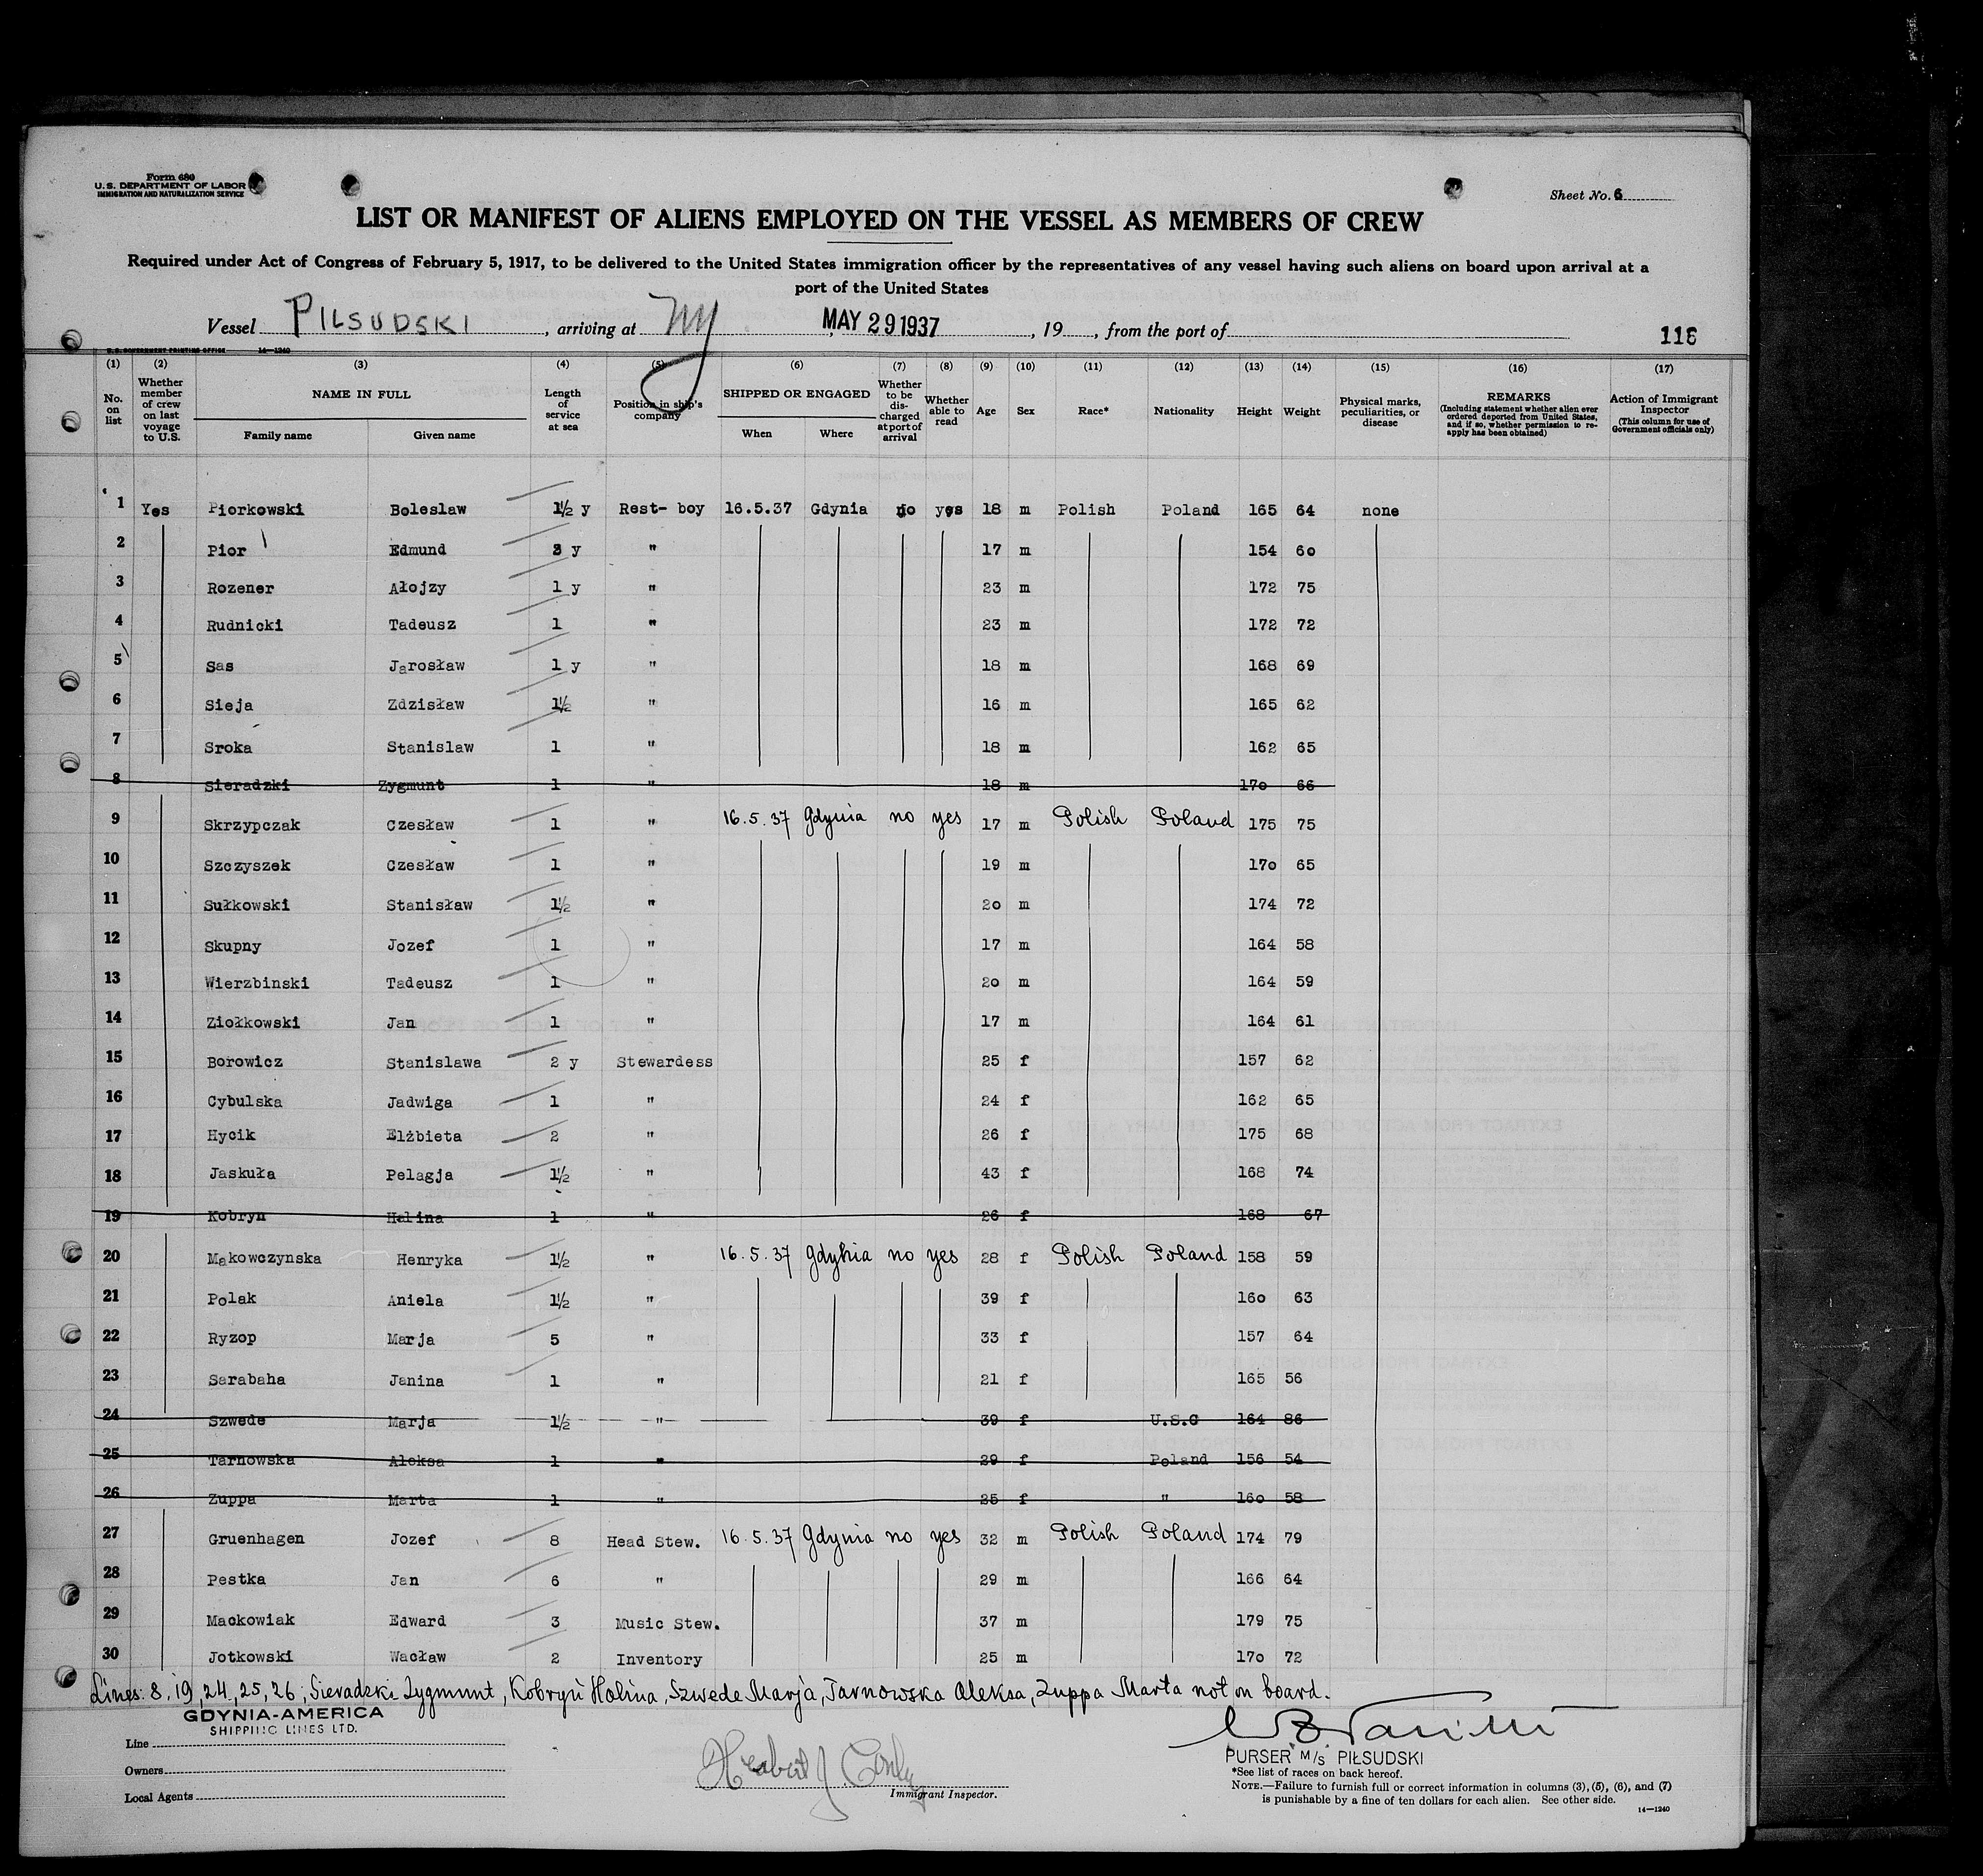 Form 680
U. S. DEPARTMENT OF LABOR
IMMIGRATION AND NATURALIZATION SERVICE
Sheet No. 6
LIST OR MANIFEST OF ALIENS EMPLOYED ON THE VESSEL AS MEMBERS OF CREW
Required under Act of Congress of February 5, 1917, to be delivered to the United States immigration officer by the representatives of any vessel having such aliens on board upon arrival at a
port of the United States
Vessel PILSUDSKI, arriving at NY MAY 29 1937, 19, from the port of
118
U. S. GOVERNMENT PRINTING OFFICE 14—1240
(1) (2) (3) (4) (5) (6) (7) (8) (9) (10) (11) (12) (13) (14) (15) (16) (17)
No. on list
Whether member of crew on last voyage to U.S.
NAME IN FULL
Family name Given name
Length of service at sea
Position in ship's company
SHIPPED OR ENGAGED
When Where
Whether to be discharged at port of arrival
Whether able to read
Age Sex Race* Nationality Height Weight
Physical marks, peculiarities, or disease
REMARKS
(Including statement whether alien ever ordered deported from United States, and if so, whether permission to re-apply has been obtained)
Action of Immigrant Inspector
(This column for use of Government officials only)
1 Yes Piorkowski Boleslaw 1½ y Rest- boy 16.5.37 Gdynia no yes 18 m Polish Poland 165 64 none
2 Pior Edmund 3 y " 17 m 154 60
3 Rozener Ałojzy 1 y " 23 m 172 75
4 Rudnicki Tadeusz 1 " 23 m 172 72
5 Sas Jarosław 1 y " 18 m 168 69
6 Sieja Zdzisław 1½ " 16 m 165 62
7 Sroka Stanislaw 1 " 18 m 162 65
8 Sieradzki Zygmunt 1 " 18 m 170 66
9 Skrzypczak Czesław 1 " 16.5.37 Gdynia no yes 17 m Polish Poland 175 75
10 Szczyszek Czesław 1 " 19 m 170 65
11 Sułkowski Stanisław 1½ " 20 m 174 72
12 Skupny Jozef 1 " 17 m 164 58
13 Wierzbinski Tadeusz 1 " 20 m 164 59
14 Ziołkowski Jan 1 " 17 m 164 61
15 Borowicz Stanislawa 2 y Stewardess 25 f 157 62
16 Cybulska Jadwiga 1 " 24 f 162 65
17 Hycik Elżbieta 2 " 26 f 175 68
18 Jaskuła Pelagja 1½ " 43 f 168 74
19 Kobryn Halina 1 " 26 f 168 67
20 Makowczynska Henryka 1½ " 16.5.37 Gdynia no yes 28 f Polish Poland 158 59
21 Polak Aniela 1½ " 39 f 160 63
22 Ryzop Marja 5 " 33 f 157 64
23 Sarabaha Janina 1 " 21 f 165 56
24 Szwede Marja 1½ " 39 f U.S.C 164 86
25 Tarnowska Aleksa 1 " 29 f Poland 156 54
26 Zuppa Marta 1 " 25 f " 160 58
27 Gruenhagen Jozef 8 Head Stew. 16.5.37 Gdynia no yes 32 m Polish Poland 174 79
28 Pestka Jan 6 " 29 m 166 64
29 Mackowiak Edward 3 Music Stew. 37 m 179 75
30 Jotkowski Wacław 2 Inventory 25 m 170 72
Lines: 8, 19, 24, 25, 26; Sieradzki Zygmunt, Kobryń Halina, Szwede Marja, Tarnowska Aleksa, Zuppa Marta not on board.
GDYNIA-AMERICA
SHIPPING LINES LTD.
Line
Owners
Local Agents
Immigrant Inspector.
PURSER M/S PIŁSUDSKI
*See list of races on back hereof.
NOTE.—Failure to furnish full or correct information in columns (3), (5), (6), and (7)
is punishable by a fine of ten dollars for each alien. See other side.
14—1240